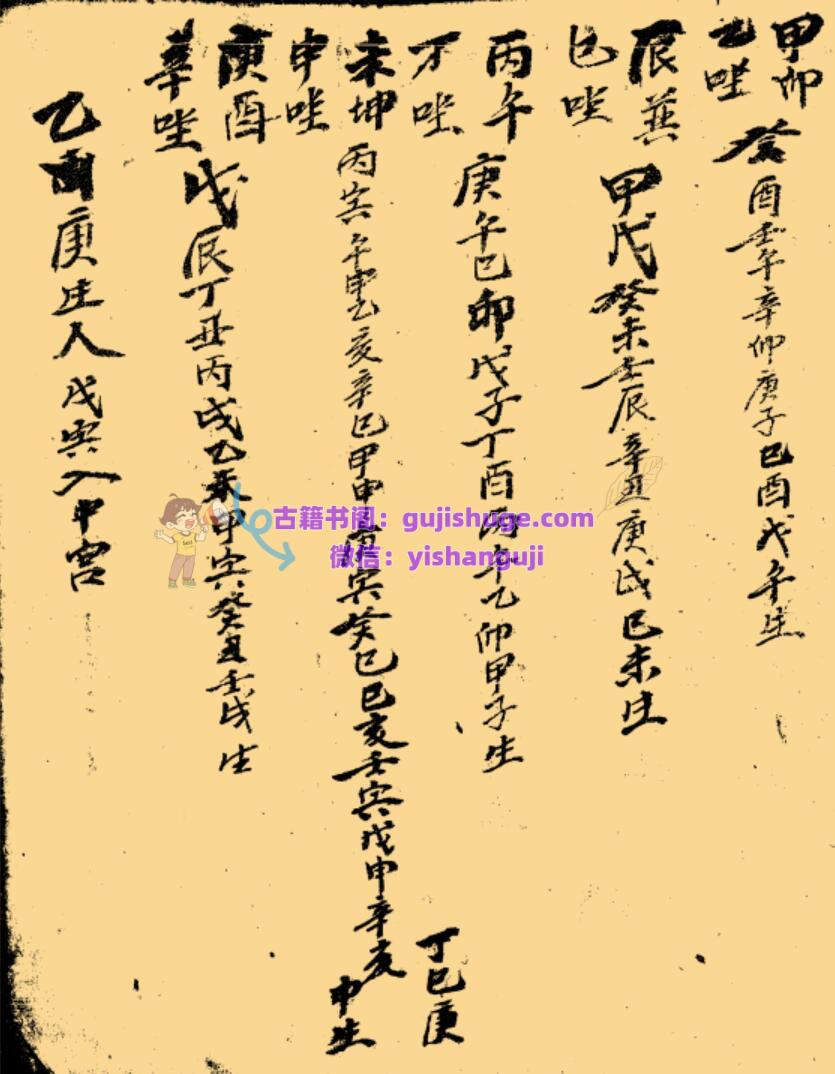 甲卯乙唑 癸酉壬午辛卯庚子己酉戊午生
辰巽巳唑 甲戌癸未壬辰辛丑庚戌己未生
丙午丁唑 庚午己卯戊子丁酉丙午乙卯甲子生
未坤申唑 丙寅 亥辛巳甲申 寅癸巳己亥壬寅戊申辛亥
丁巳庚
申生
庚酉辛唑 戊辰丁丑丙戌乙未甲寅癸丑壬戌生
乙 庚生人戊寅入中宫
古籍书阁:gujishuge.com
微信:yishanguji